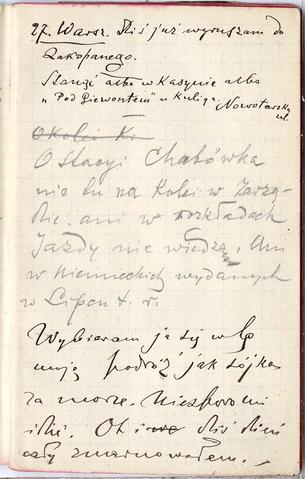 27. Warsz. Dziś już wyruszam do
Zakopanego.
Stanąć albo w Kasynie albo
"Pod Giewontem" u Kuliga. Nowotarska
ul.
Okolei K.
O Stacyi Chabówka
nic tu na Kolei w Zarzą-
dzie ani w rozkładach
Jazdy nie wiedzą, Ani
w niemieckich wydanych
w Lipcu t. r.
Wybieram ja się w tę
moją podróż jak sójka
za morze. Niesporo mi
idzie. Ot i dziś dzień
cały zmarnowałem.